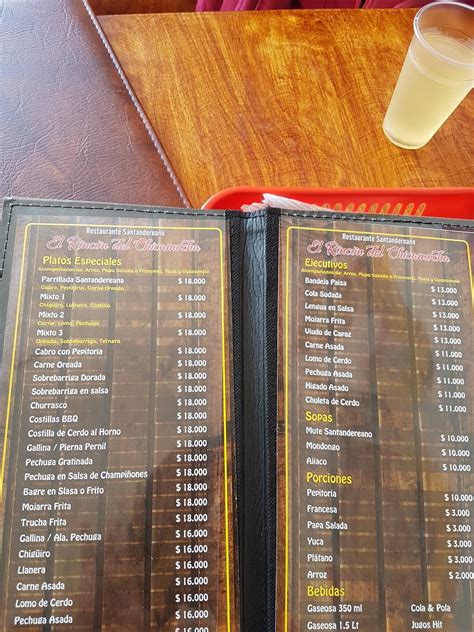 Restaurante Santandereano
El Rincón del Chicamocha
Platos Especiales
Acompañados de: Arroz, Papa Salada o Francesa, Yuca y Guacamole
Parrillada Santandereana $ 18.000
Cabro, Pepitoria, Carne Oreada
Mixto 1 $ 18.000
Chigüiro, Llanera, Costilla
Mixto 2 $ 18.000
Carne, Lomo, Pechuga
Mixto 3 $ 18.000
Oreada, Sobrebarriga, Ternera
Cabro con Pepitoria $ 18.000
Carne Oreada $ 18.000
Sobrebarriga Dorada $ 18.000
Sobrebarriga en salsa $ 18.000
Churrasco $ 18.000
Costillas BBQ $ 18.000
Costilla de Cerdo al Horno $ 18.000
Gallina / Pierna Pernil $ 18.000
Pechuga Gratinada $ 18.000
Pechuga en Salsa de Champiñones $ 18.000
Bagre en Slasa o Frito $ 18.000
Mojarra Frita $ 18.000
Trucha Frita $ 18.000
Gallina / Ala, Pechuga $ 16.000
Chigüiro $ 16.000
Llanera $ 16.000
Carne Asada $ 16.000
Lomo de Cerdo $ 16.000
Pechuga Asada $ 16.000
Restaurante Santandereano
El Rincón del Chicamocha
Ejecutivos
Acompañados de: Arroz, Papa Salada o Francesa, Yuca y Guacamole
Bandeja Paisa $ 13.000
Cola Sudada $ 13.000
Lengua en Salsa $ 13.000
Mojarra Frita $ 13.000
Viudo de Capaz $ 13.000
Carne Asada $ 13.000
Lomo de Cerdo $ 13.000
Pechuga Asada $ 13.000
Higado Asado $ 13.000
Chuleta de Cerdo $ 13.000
Sopas
Mute Santandereano $ 10.000
Mondongo $ 10.000
Ajiaco $ 10.000
Porciones
Pepitoria $ 10.000
Francesa $ 3.000
Papa Salada $ 3.000
Yuca $ 3.000
Plátano $ 3.000
Arroz $ 2.000
Bebidas
Gaseosa 350 ml Cola & Pola
Gaseosa 1.5 Lt Jugos Hit